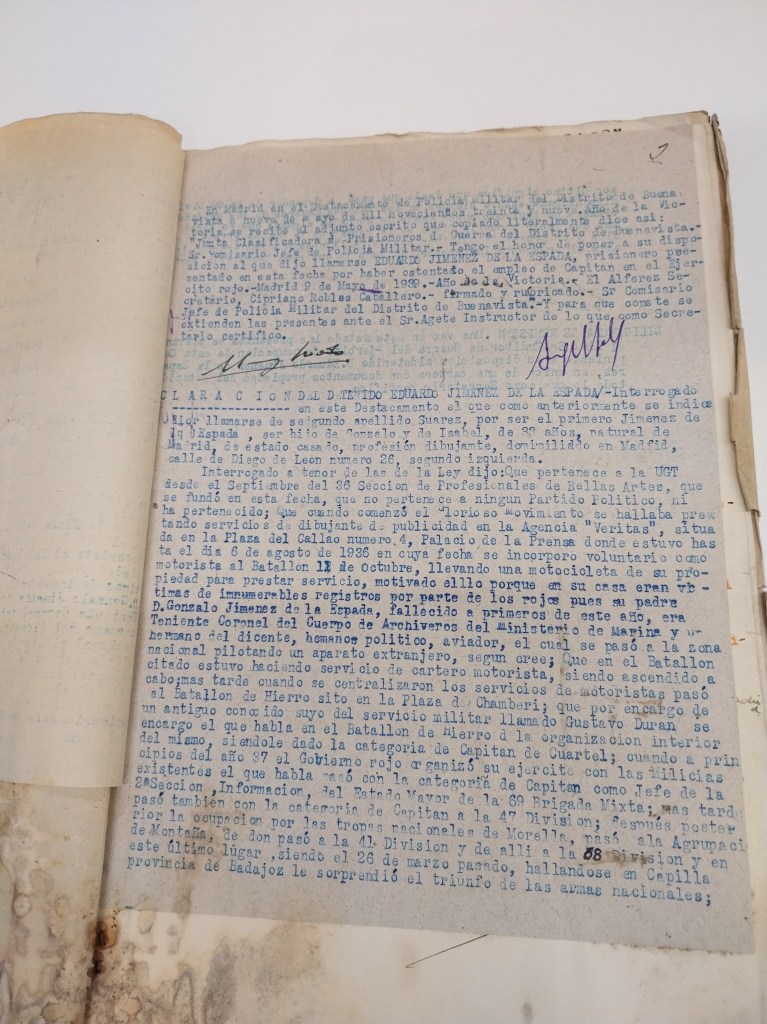 2
En Madrid en el Destacamento de Policia Militar del Distrito de Buena
vista a nueve de Mayo de Mil novecientos treinta y nueve Año de la Vic-
toria se recibe el adjunto escrito que copiado literalmente dice asi:
"Junta Clasificadora de Prisioneros de Guerra del Distrito de Buenavista.-
Sr. Comisario Jefe de Policia Militar.- Tengo el honor de poner a su dispo-
sicion al que dijo llamarse EDUARDO JIMENEZ DE LA ESPADA, prisionero pre-
sentado en esta fecha por haber ostentado el empleo de Capitan en el Ejer-
cito rojo.-Madrid 9 de Mayo de 1939.-Año de la Victoria.- El Alferez Se-
cretario, Cipriano Robles Caballero.- firmado y rubricado.- Sr Comisario
Jefe de Policia Militar del Distrito de Buenavista.-Y para que conste se
extienden las presentes ante el Sr.Agete Instructor de lo que como Secre-
tario certifico.
C L A R A C I O N DEL DETENIDO EDUARDO JIMENEZ DE LA ESPADA/-Interrogado
en este Destacamento el que como anteriormente se indica
dijo llamarse de segundo apellido Suarez, por ser el primero Jimenez de
la Espada , ser hijo de Gonzalo y de Isabel, de 32 años, natural de
Madrid, de estado casado, profesión dibujante, domiciliado en Madfid,
calle de Diego de Leon numero 26, segundo izquierda.
Interrogado a tenor de las de la Ley dijo:Que pertenece a la UGT
desde el Septiembre del 36 Seccion de Profesionales de Bellas Artes, que
se fundó en esta fecha, que no pertenece a ningun Partido Politico, ni
ha pertenecido; Que cuando comenzó el Glorioso Movimiento se hallaba pres
tando servicios de dibujante de publicidad en la Agencia "Veritas", situa
da en la Plaza del Callao numero 4, Palacio de la Prensa donde estuvo has
ta el dia 6 de agosto de 1936 en cuya fecha se incorporo voluntario como
motorista al Batallon de Octubre, llevando una motocicleta de su pro-
piedad para prestar servicio, motivado elllo porque en su casa eran vic-
timas de innumerables registros por parte de los rojos pues su padre
D.Gonzalo Jimenez de la Espada, fallecido a primeros de este año, era
Teniente Coronel del Cuerpo de Archiveros del Ministerio de Marina y un
hermano del dicente, hemanos politico, aviador, el cual se pasó a la zona
nacional pilotando un aparato extranjero, segun cree; Que en el Batallon
citado estuvo haciendo servicio de cartero motorista, siendo ascendido a
cabo;mas tarde cuando se centralizaron los servicios de motoristas pasó
al Batallon de Hierro sito en la Plaza de Chamberi; que por encargo de
un antiguo conocido suyo del servicio militar llamado Gustavo Duran se
encargo el que habla en el Batallon de Hierro d la organizacion interior
del mismo, siendole dado la categoria de Capitan de Cuartel; cuando a prin
cipios del año 37 el Gobierno rojo organizó su ejercito con las Milicias
existentes el que habla pasó con la categoria de Capitan como Jefe de la
2ªSeccion ,Informacion, del Estado Mayor de la 69 Brigada Mixta; mas tarde
pasó tambien con la categoria de Capitan a la 47 Division; después poster
rior la ocupacion por las tropas nacionales de Morella, pasó ala Agrupaci
de Montaña, de don pasó a la 41 Division y de alli a la 68 Division y en
este último lugar ,siendo el 26 de marzo pasado, hallandose en Capilla
provincia de Badajoz le sorprendió el triunfo de las armas nacionales;